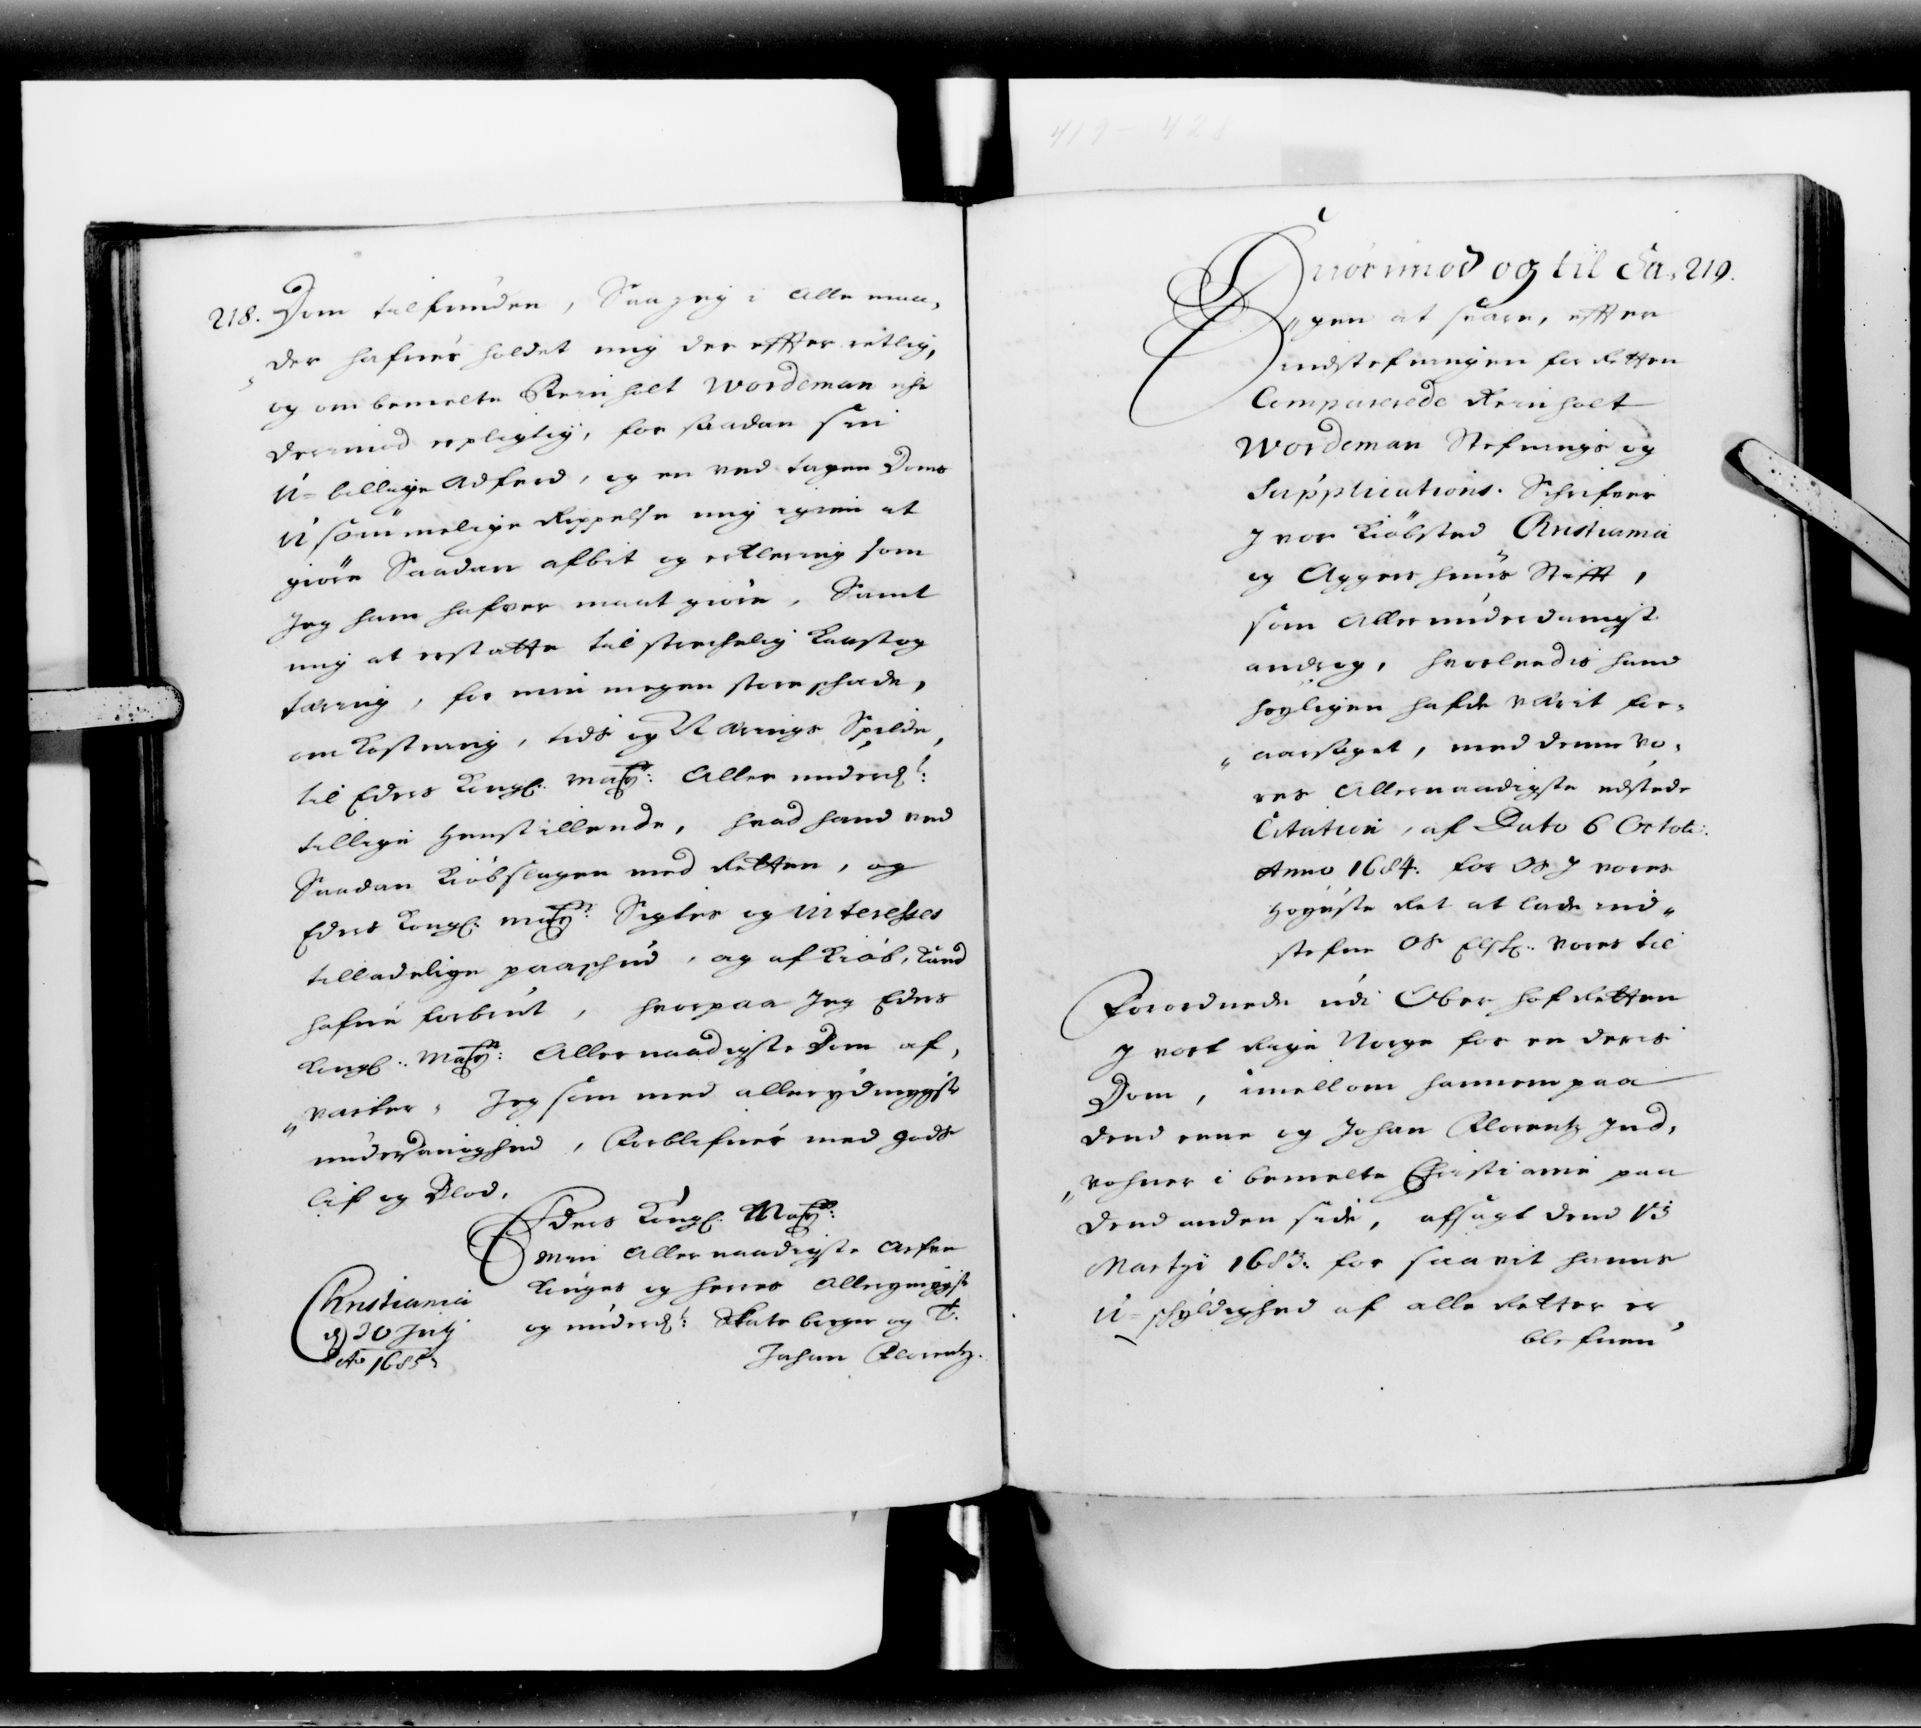 218. Dom tilfunden, Saa jeg i alle maa,
„der hafuer holdet mig der effter rètlig,
og om bemelte Reinholt Wordeman ej
derimod er pligtig, for saadan sin
U-billige Adferd, og en ved tagen Doms
U sömmelige Rippelse mig igien at
giöre Saadan afbit og erklering som
Jeg ham hafver maat giöre, Samt
mig at erstatte tilstrechelig Kaast og
tæring, for min megen store schade,
om Kostning, tids og Nærings Spilde,
til Eders Kongl: Maÿt: Aller underd:
tillige Henstillende, hvad hand ved
Saadan Kiöbslagen med Retten, og
Eders Kongl: Maÿts: Sigter og Interesses
tilladelige paaschud, og af Kiöb, Kand
hafue forbrut, hvorpaa Jeg Eders
Kongl: Maÿts: Allernaadigste Dom af,
„varter, Jeg som med allerydmygste
underdanighed, Forblifuer med Gods
lif og Blod.
Eders Kongl: Maÿts:
Min Allernaadigste Arfve
Konges og Herres Allerydmygste
og underd: Skatte borger og T:
Johan Florentz.
Christiania
d) 30 July
Ao 1685
419 - 428
Huorimod og til Sa, 219.
„gen at svare, effter
indstefningen for Retten
Comparerede Reinholt
Wordeman Stefnings og
Supplications. Schrifver
J vor Kiöbsted Christiania
og Aggershuus Stifft,
som Allerunderdanigst
androg, hvorledis hand
höyligen hafde værit for,
„aarsaget, med denne Vo,
res Allernaadigste udstede
Citation, af Dato 6 Octob:
Anno 1684. for Os J vores
Höyeste Ret at lade ind„
stefne Os Elsk: vores til
Forordnede udi Ober hof Retten
J vort Rige Norge for en deris
Dom, imellom hannem paa
dend eene og Johan Florentz Ind,
„vohner i bemelte Christiania paa
dend anden side, afsagt dend 15
Martji 1683. for saavit hanns
U-schyldighed af alle Retter er
blefuen